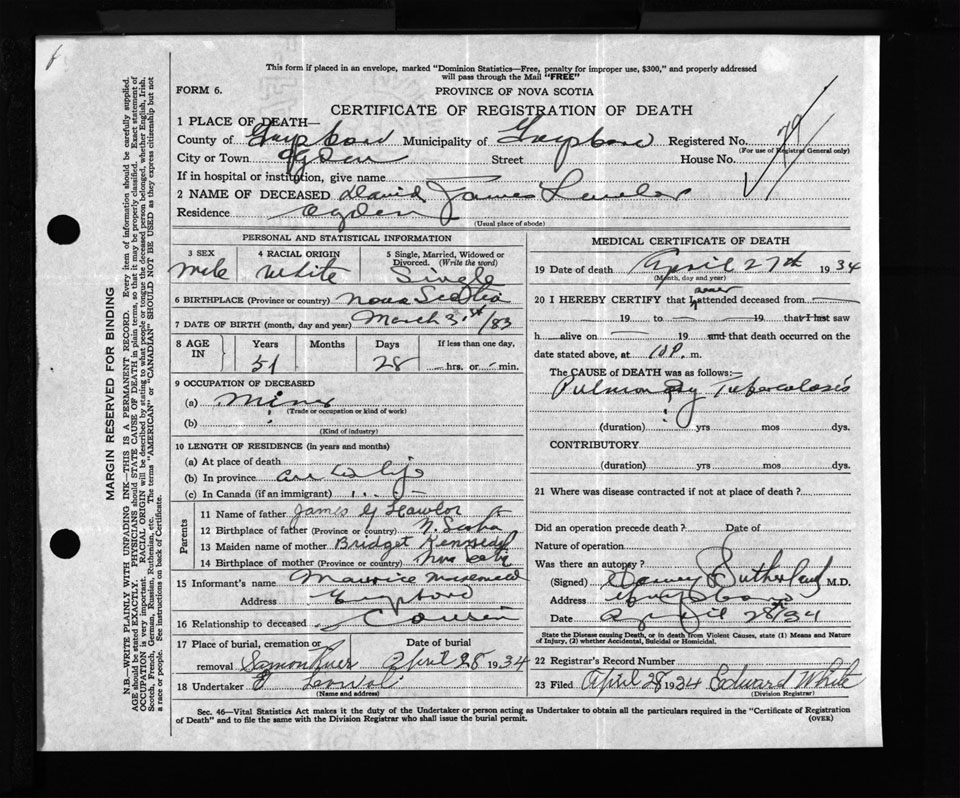 This form if placed in an envelope, marked "Dominion Statistics—Free, penalty for improper use, $300," and properly addressed
will pass through the Mail "FREE"
FORM 6.
PROVINCE OF NOVA SCOTIA
CERTIFICATE OF REGISTRATION OF DEATH
1 PLACE OF DEATH—
County of Guysboro Municipality of Guysboro Registered No. 79
(For use of Registrar General only)
City or Town Ogden Street House No.
If in hospital or institution, give name
2 NAME OF DECEASED David James Lawlor
Residence Ogden
(Usual place of abode)
PERSONAL AND STATISTICAL INFORMATION
3 SEX 4 RACIAL ORIGIN 5 Single, Married, Widowed or Divorced. (Write the word)
Male White Single
6 BIRTHPLACE (Province or country) Nova Scotia
7 DATE OF BIRTH (month, day and year) March 31st /83
8 AGE IN Years Months Days If less than one day,
51 28 hrs. or min.
9 OCCUPATION OF DECEASED
(a) Miner
(Trade or occupation or kind of work)
(b)
(Kind of industry)
10 LENGTH OF RESIDENCE (in years and months)
(a) At place of death
(b) In province life
(c) In Canada (if an immigrant)
Parents
11 Name of father James Lawlor
12 Birthplace of father (Province or country) N. Scotia
13 Maiden name of mother Bridget Kennedy
14 Birthplace of mother (Province or country) Nova Scotia
15 Informant's name Maurice
Address Guysboro
16 Relationship to deceased Cousin
17 Place of burial, cremation or removal Salmon River Date of burial April 28 1934
18 Undertaker
(Name and address)
MEDICAL CERTIFICATE OF DEATH
19 Date of death April 27th 1934
(Month, day and year)
20 I HEREBY CERTIFY that I never attended deceased from
19 to 19 that I last saw
h alive on 19 and that death occurred on the
date stated above, at 10 P. m.
The CAUSE of DEATH was as follows:—
Pulmonary Tuberculosis
(duration) yrs mos dys.
CONTRIBUTORY
(duration) yrs mos dys.
21 Where was disease contracted if not at place of death?
Did an operation precede death? Date of
Nature of operation
Was there an autopsy?
(Signed) Sutherland M.D.
Address Guysboro
Date April 28th/34
State the Disease causing Death, or in death from Violent Causes, state (1) Means and Nature
of Injury, (2) whether Accidental, Suicidal or Homicidal.
22 Registrar's Record Number
23 Filed April 28 1934 Edward White
(Division Registrar)
Sec. 46—Vital Statistics Act makes it the duty of the Undertaker or person acting as Undertaker to obtain all the particulars required in the "Certificate of Registration
of Death" and to file the same with the Division Registrar who shall issue the burial permit.
(OVER)
MARGIN RESERVED FOR BINDING
N.B.—WRITE PLAINLY WITH UNFADING INK—THIS IS A PERMANENT RECORD. Every item of information should be carefully supplied.
AGE should be stated EXACTLY. PHYSICIANS should STATE CAUSE OF DEATH in plain terms, so that it may be properly classified. Exact statement of
OCCUPATION is very important. RACIAL ORIGIN will be described by stating to what people or tongue the deceased person belonged, whether English, Irish,
Scotch, French, German, Russian, Ruthenian, etc. The terms "AMERICAN" or "CANADIAN" SHOULD NOT BE USED as they express citizenship but not
a race or people. See instructions on back of Certificate.